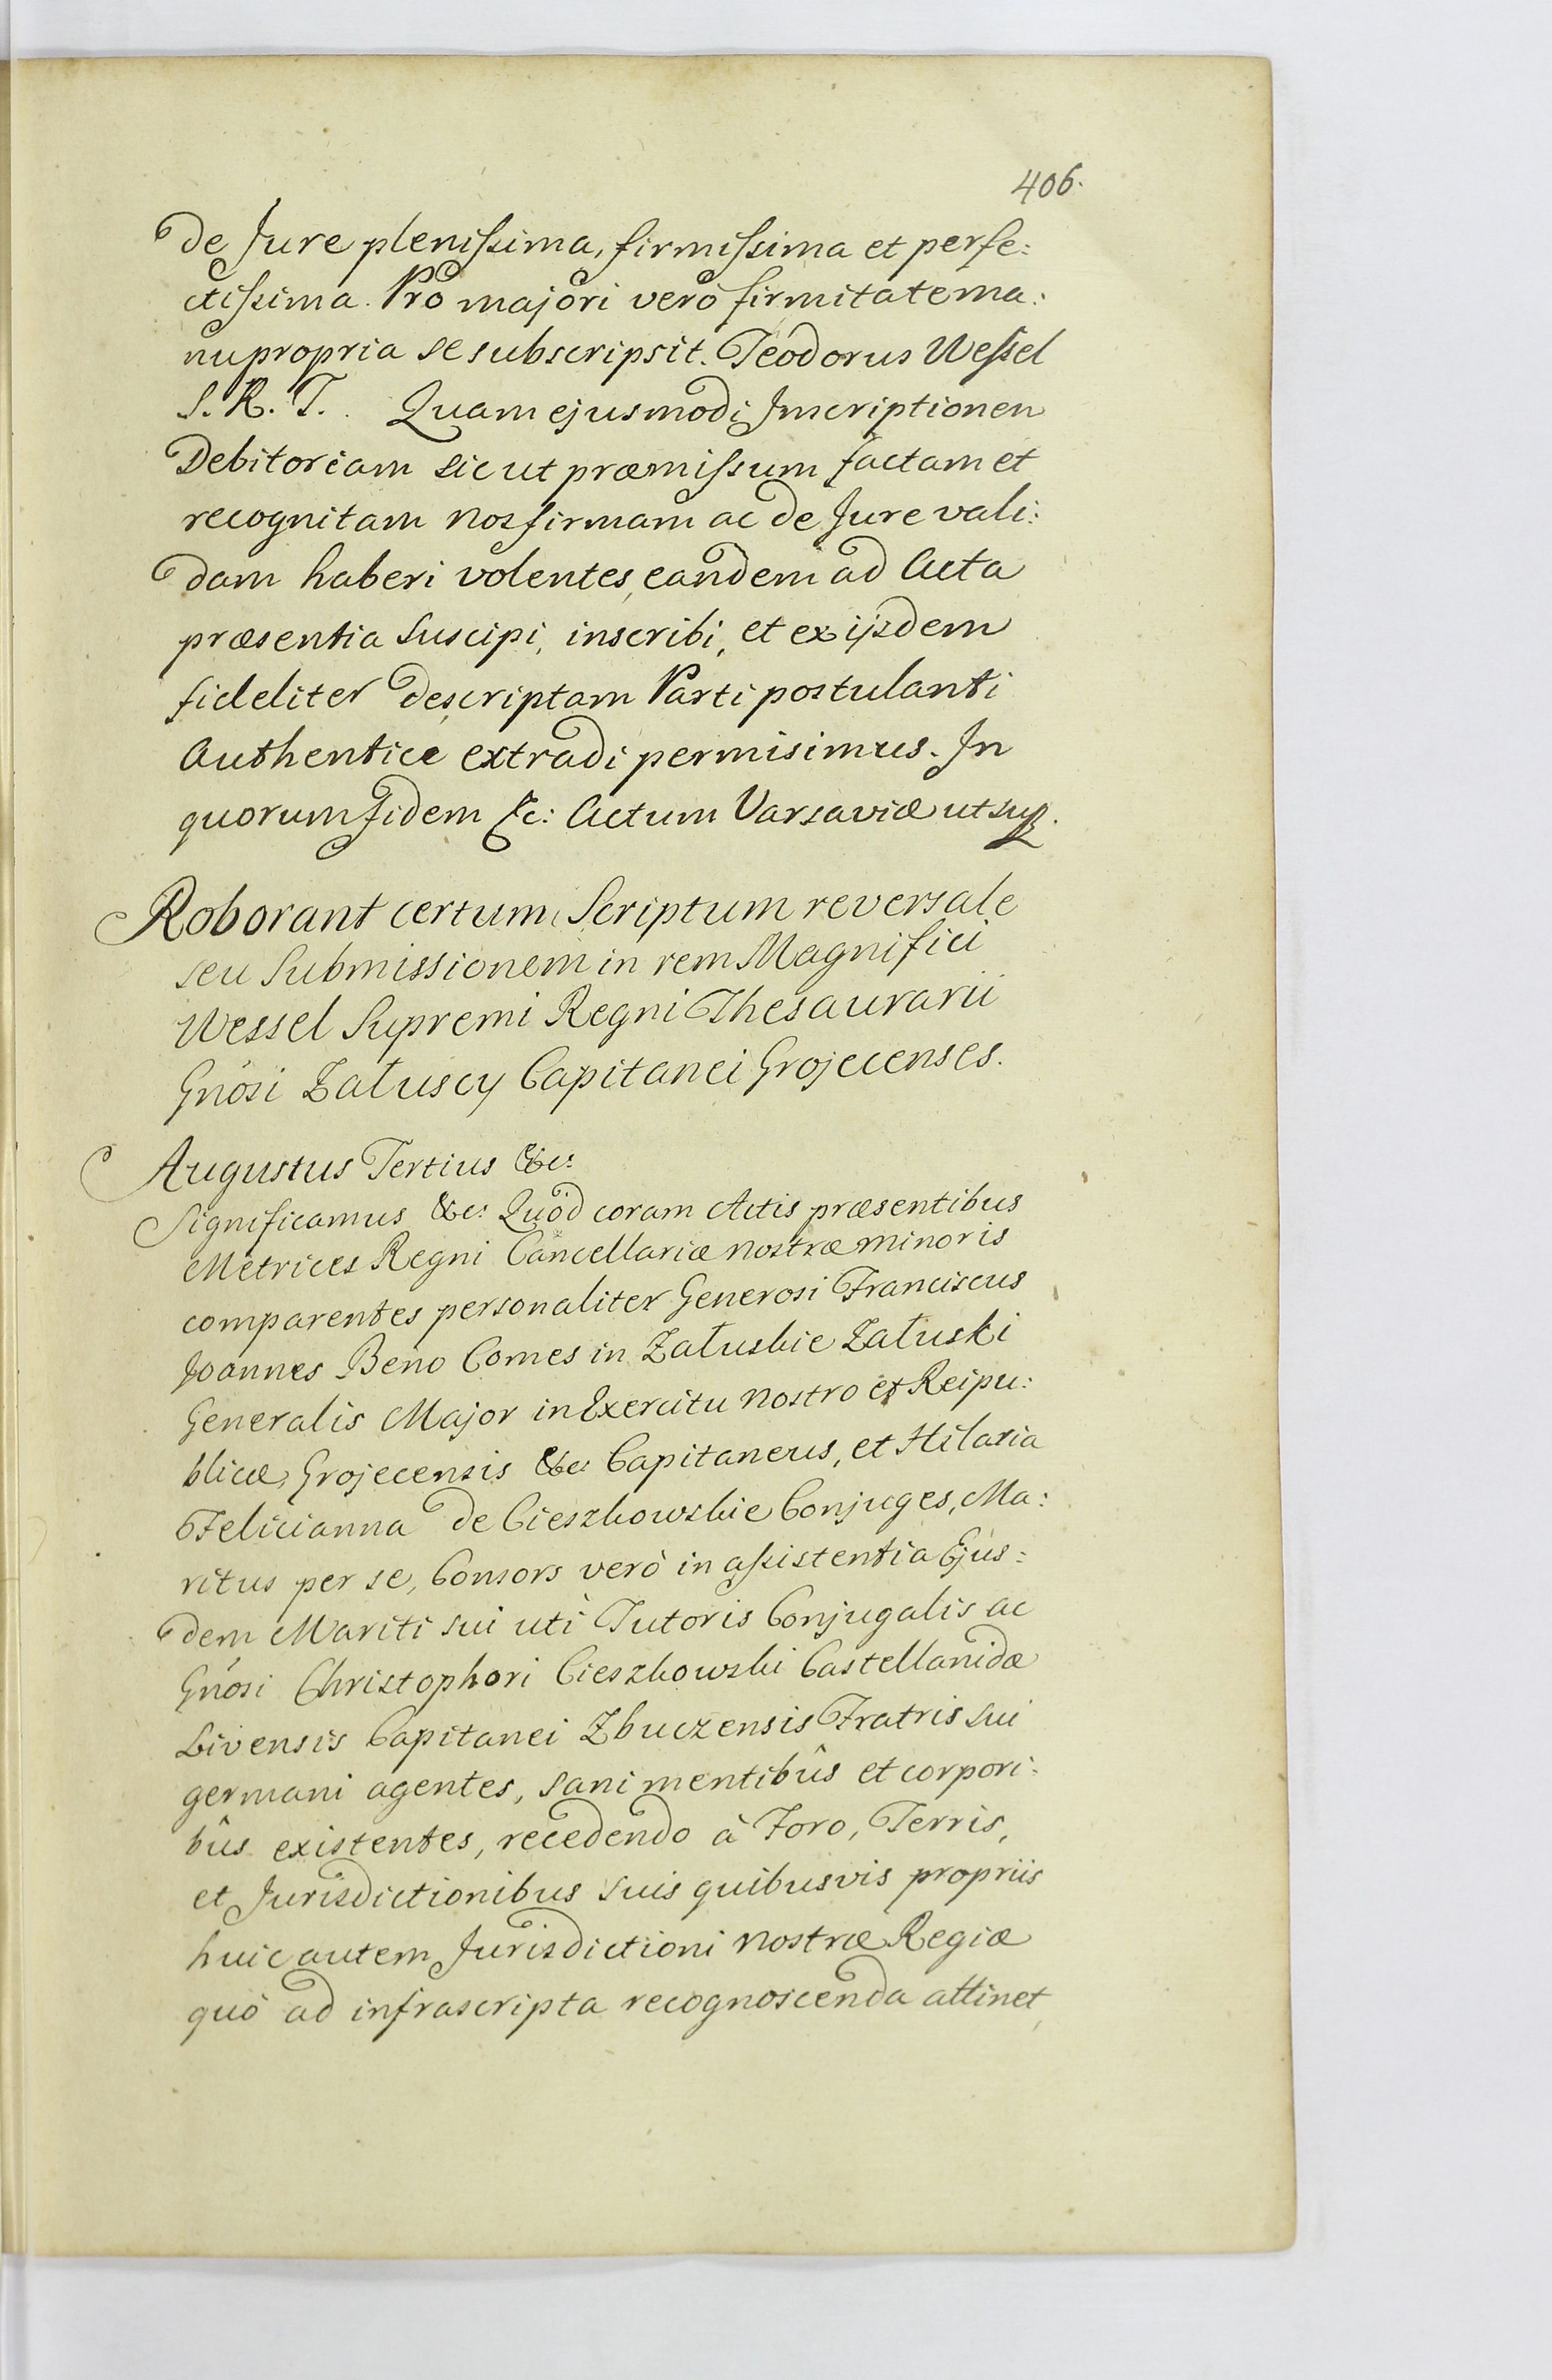 406.
de Jure plenissima, firmissima et perfe:
ctissima. Pro majori verò firmitate ma:
nu propria se subscripsit. Teodorus Wessel
S. R. T. Quam ejusmodi Inscriptionem
Debitoriam sicut præmissum factam et
recognitam nos firmam ac de Jure vali:
dam haberi volentes, eandem ad Acta
præsentia suscipi, inscribi, et ex ijsdem
fideliter descriptam Parti postulanti
Authentice extradi permisimus. In
quorum fidem &c: Actum Varsaviæ ut sup.
Roborant certum Scriptum reversale
seu Submissionem in rem Magnifici
Wessel Supremi Regni Thesaurarii
Gnosi Załuscy Capitanei Grojecenses.
Augustus Tertius &c:
Significamus &c: Quod coram Actis præsentibus
Metrices Regni Cancellariæ nostræ minoris
comparentes personaliter Generosi Franciscus
Joannes Beno Comes in Załuskie Załuski
Generalis Major in Exercitu nostro et Reipu:
blicæ, Grojecensis &c: Capitaneus, et Hilaria
Felicianna de Cieszkowskie Conjuges, Ma:
ritus per se, Consors verò in assistentia Ejus:
dem Mariti sui uti Tutoris Conjugalis ac
Gnosi Christophori Cieszkowski Castellanidæ
Livensis Capitanei Zbuczensis Fratris sui
germani agentes, sani mentibûs et corpori:
bûs existentes, recedendo à Foro, Terris,
et Jurisdictionibus suis quibusvis propriis
huic autem Jurisdictioni nostræ Regiæ
quò ad infrascripta recognoscenda attinet,